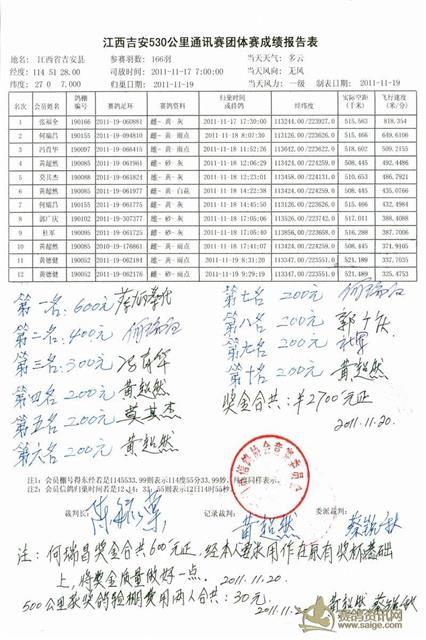 江西吉安530公里通讯赛团体赛成绩报告表
地点：江西省吉安县 参赛羽数：166羽 当天天气：多云
经度：114 51 28.00 司放时间：2011-11-17 7:00:00 当天风向：无风
纬度：27 0 7.000 归巢日期：2011-11-19 当天风力：一级 制表日期：2011-11-19
名次 会员姓名 鸽棚编号 赛鸽足环 赛鸽资料 归巢时间或持鸽 经纬度 实际空距(千米) 飞行速度(米/分)
1 张福全 190166 2011-19-060881 雌-黄-灰 2011-11-17 17:30:00 113244.00/223927.0 515.563 818.354
2 何瑞昌 190085 2011-19-094810 雌-黄-雨点 2011-11-18 8:07:30 113526.00/224259.0 515.466 649.6106
3 冯有华 190097 2011-19-066415 雄-黄-雨点 2011-11-18 12:26:43 113526.00/223642.0 518.602 509.2155
4 黄超然 190090 2011-19-062452 雄-砂-雨点 2011-11-18 12:06:29 113424.00/224259.0 508.445 492.4486
5 莫其杰 190085 2011-19-061824 雄-黄-灰 2011-11-18 12:23:01 113424.00/224131.0 510.653 486.7921
6 黄超然 190090 2011-19-061977 雌-黄-白花 2011-11-18 14:22:38 113424.00/224259.0 508.445 435.0766
7 何瑞昌 190085 2011-19-061768 雄-黄-灰 2011-11-18 14:45:50 113526.00/224259.0 515.466 431.2409
8 郭广庆 190085 2011-19-307377 雄-砂-灰 2011-11-18 17:05:08 113526.00/223742.0 517.011 388.4088
9 杜军 190095 2011-19-062019 雌-砂-灰 2011-11-18 17:20:50 113526.00/223856.0 516.288 387.7006
10 黄超然 190085 2010-19-176861 雄-黄-雨点 2011-11-18 17:41:07 113424.00/224259.0 508.445 371.9405
11 黄德健 190052 2011-19-062184 雌-黄-雨点 2011-11-19 8:31:20 113347.00/223551.0 521.189 335.7033
12 黄德健 190052 2011-19-061819 雌-砂-雨点 2011-11-19 9:29:19 113347.00/223551.0 521.489 325.4753
第一名：600元
第七名 200元 何瑞昌
第二名：400元 何瑞昌
第八名 200元 郭广庆
第三名：300元 冯有华
第九名 200元 杜军
第四名 200元 黄超然
第十名 200元 黄超然
第五名 200元 莫其杰
奖金合共：¥2700元正
第六名 200元 黄超然
2011.11.20.
注1：会员棚号得东经若是1145533.99则表示114度55分33.99秒，纬度同样表示。
注2：会员信鸽归巢时间若是12:14:31.55则表示12日14时55秒。
裁判长： 记录裁判：黄超然 委派裁判：
注：何瑞昌奖金合共600元正，经本人要求用作在原有奖杯基础
上，将奖金质量做好一点。2011.11.20.
500公里获奖鸽验棚费用两人合共：30元。
2011.11.2 黄超然
赛鸽资讯网